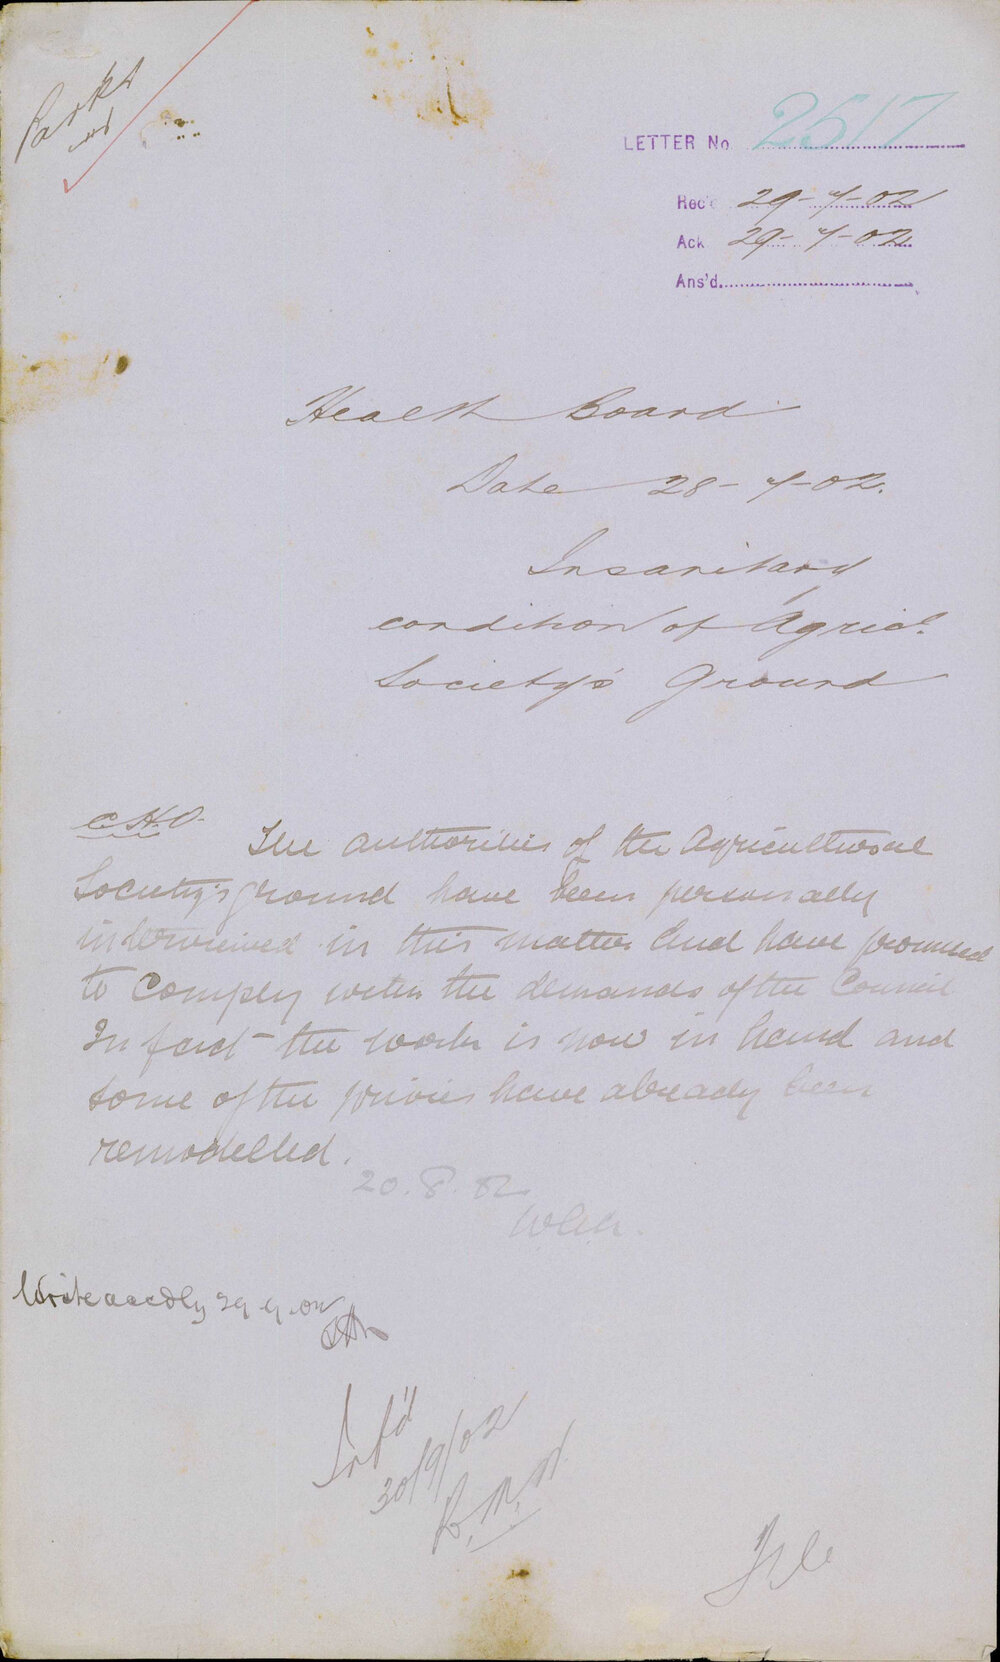 Parks
LETTER No 2517
Rec'd 29-7-02
Ack 29-7-02
Ans'd.
Health Board
Date 28-7-02.
Insanitary
condition of Agricl.
Society's Ground
C.H.O.
The authorities of the Agricultural
Society's ground have been personally
interviewed in this matter and have promised
to comply with the demands of the Council
In fact the work is now in hand and
some of the privies have already been
remodelled.
20.8.02
Write accdly 29.9.02
Inf'd
30/9/02
File